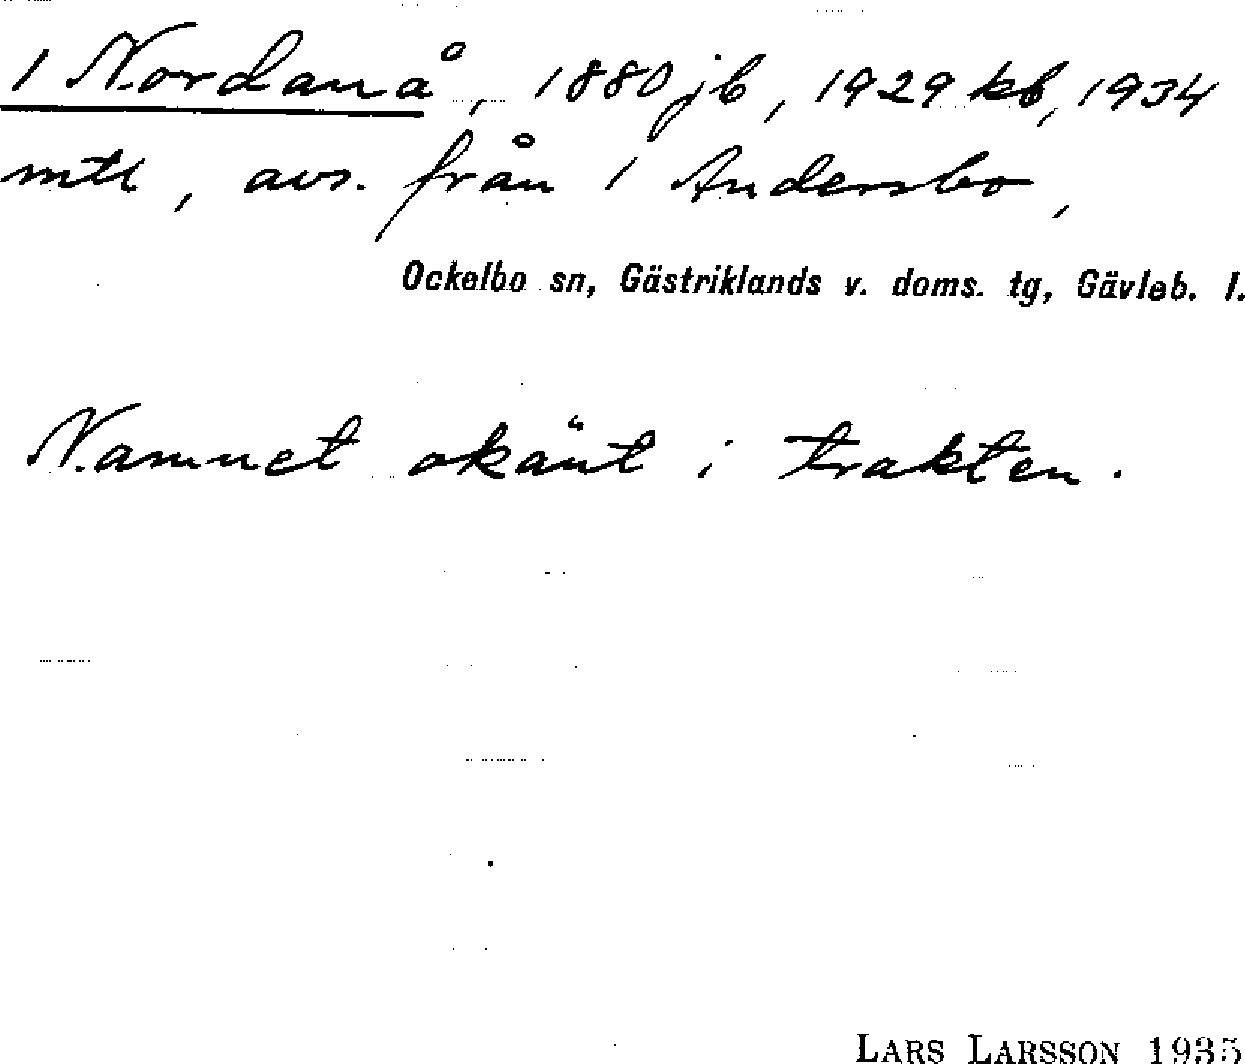 1 Nordanå, 1880 jb, 1929 kb, 1934
mtl, avs. från 1 Andersbo,
Ockelbo sn, Gästriklands v. doms. tg, Gävleb. l.
Namnet okänt i trakten.
LARS LARSSON 1935